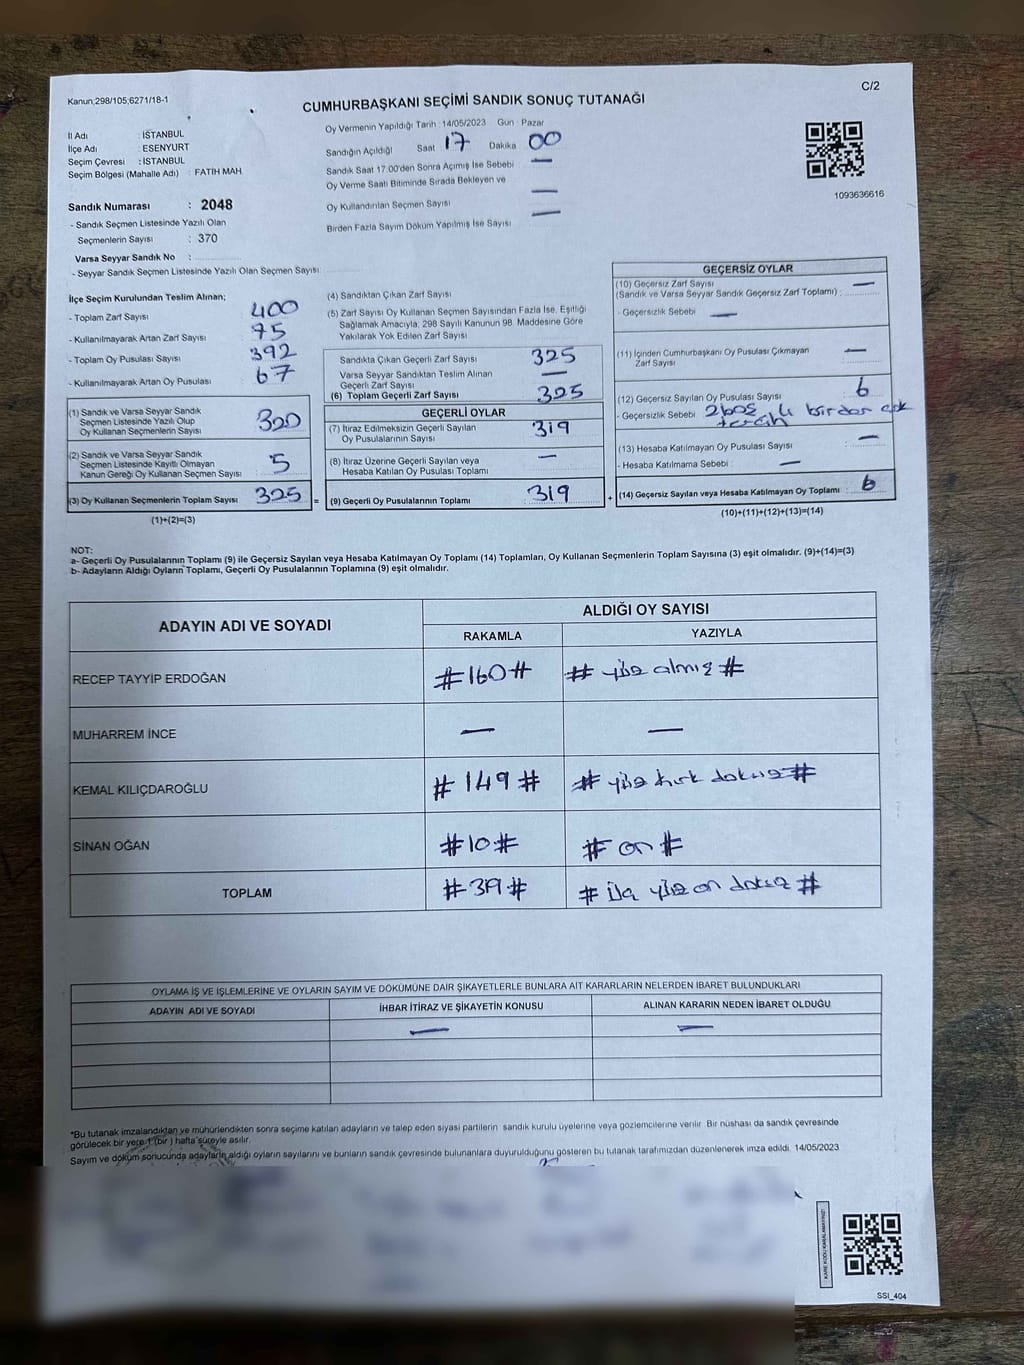 Kanun;298/105;6271/18-1
C/2
CUMHURBAŞKANI SEÇİMİ SANDIK SONUÇ TUTANAĞI
İl Adı : İSTANBUL
İlçe Adı : ESENYURT
Seçim Çevresi : İSTANBUL
Seçim Bölgesi (Mahalle Adı) : FATİH MAH.
Sandık Numarası : 2048
- Sandık Seçmen Listesinde Yazılı Olan
Seçmenlerin Sayısı : 370
Varsa Seyyar Sandık No :
- Seyyar Sandık Seçmen Listesinde Yazılı Olan Seçmen Sayısı:
Oy Vermenin Yapıldığı Tarih : 14/05/2023 Gün : Pazar
Sandığın Açıldığı Saat 17 Dakika 00
Sandık Saat 17:00'den Sonra Açımış İse Sebebi —
Oy Verme Saati Bitiminde Sırada Bekleyen ve
Oy Kullandırılan Seçmen Sayısı —
Birden Fazla Sayım Döküm Yapılmış İse Sayısı —
1093636616
İlçe Seçim Kurulundan Teslim Alınan;
- Toplam Zarf Sayısı 400
- Kullanılmayarak Artan Zarf Sayısı 75
- Toplam Oy Pusulası Sayısı 392
- Kullanılmayarak Artan Oy Pusulası 67
(1) Sandık ve Varsa Seyyar Sandık
Seçmen Listesinde Yazılı Olup
Oy Kullanan Seçmenlerin Sayısı 320
(2) Sandık ve Varsa Seyyar Sandık
Seçmen Listesinde Kayıtlı Olmayan
Kanun Gereği Oy Kullanan Seçmen Sayısı 5
(3) Oy Kullanan Seçmenlerin Toplam Sayısı 325 =
(1)+(2)=(3)
(4) Sandıktan Çıkan Zarf Sayısı
(5) Zarf Sayısı Oy Kullanan Seçmen Sayısından Fazla İse, Eşitliği
Sağlamak Amacıyla, 298 Sayılı Kanunun 98. Maddesine Göre
Yakılarak Yok Edilen Zarf Sayısı
Sandıkta Çıkan Geçerli Zarf Sayısı 325
Varsa Seyyar Sandıktan Teslim Alınan —
Geçerli Zarf Sayısı
(6) Toplam Geçerli Zarf Sayısı 325
GEÇERLİ OYLAR
(7) İtiraz Edilmeksizin Geçerli Sayılan
Oy Pusulalarının Sayısı 319
(8) İtiraz Üzerine Geçerli Sayılan veya
Hesaba Katılan Oy Pusulası Toplamı —
(9) Geçerli Oy Pusulalarının Toplamı 319 +
GEÇERSİZ OYLAR
(10) Geçersiz Zarf Sayısı
(Sandık ve Varsa Seyyar Sandık Geçersiz Zarf Toplamı) : —
- Geçersizlik Sebebi : —
(11) İçinden Cumhurbaşkanı Oy Pusulası Çıkmayan
Zarf Sayısı —
(12) Geçersiz Sayılan Oy Pusulası Sayısı 6
- Geçersizlik Sebebi : 2 boş 4 birden çok
tercih
(13) Hesaba Katılmayan Oy Pusulası Sayısı : —
- Hesaba Katılmama Sebebi : —
(14) Geçersiz Sayılan veya Hesaba Katılmayan Oy Toplamı : 6
(10)+(11)+(12)+(13)=(14)
NOT:
a- Geçerli Oy Pusulalarının Toplamı (9) ile Geçersiz Sayılan veya Hesaba Katılmayan Oy Toplamı (14) Toplamları, Oy Kullanan Seçmenlerin Toplam Sayısına (3) eşit olmalıdır. (9)+(14)=(3)
b- Adayların Aldığı Oyların Toplamı, Geçerli Oy Pusulalarının Toplamına (9) eşit olmalıdır.
ADAYIN ADI VE SOYADI
ALDIĞI OY SAYISI
RAKAMLA YAZIYLA
RECEP TAYYİP ERDOĞAN #160# # yüz altmış #
MUHARREM İNCE — —
KEMAL KILIÇDAROĞLU #149# # yüz kırk dokuz #
SİNAN OĞAN #10# # on #
TOPLAM #319# # üç yüz on dokuz #
OYLAMA İŞ VE İŞLEMLERİNE VE OYLARIN SAYIM VE DÖKÜMÜNE DAİR ŞİKAYETLERLE BUNLARA AİT KARARLARIN NELERDEN İBARET BULUNDUKLARI
ADAYIN ADI VE SOYADI İHBAR İTİRAZ VE ŞİKAYETİN KONUSU ALINAN KARARIN NEDEN İBARET OLDUĞU
— —
*Bu tutanak imzalandıktan ve mühürlendikten sonra seçime katılan adayların ve talep eden siyasi partilerin sandık kurulu üyelerine veya gözlemcilerine verilir. Bir nüshası da sandık çevresinde
görülecek bir yere 1 (bir) hafta süreyle asılır.
Sayım ve döküm sonucunda adayların aldığı oyların sayılarını ve bunların sandık çevresinde bulunanlara duyurulduğunu gösteren bu tutanak tarafımızdan düzenlenerek imza edildi. 14/05/2023
KARE KODU KARALAMAYINIZ!
SSI_404